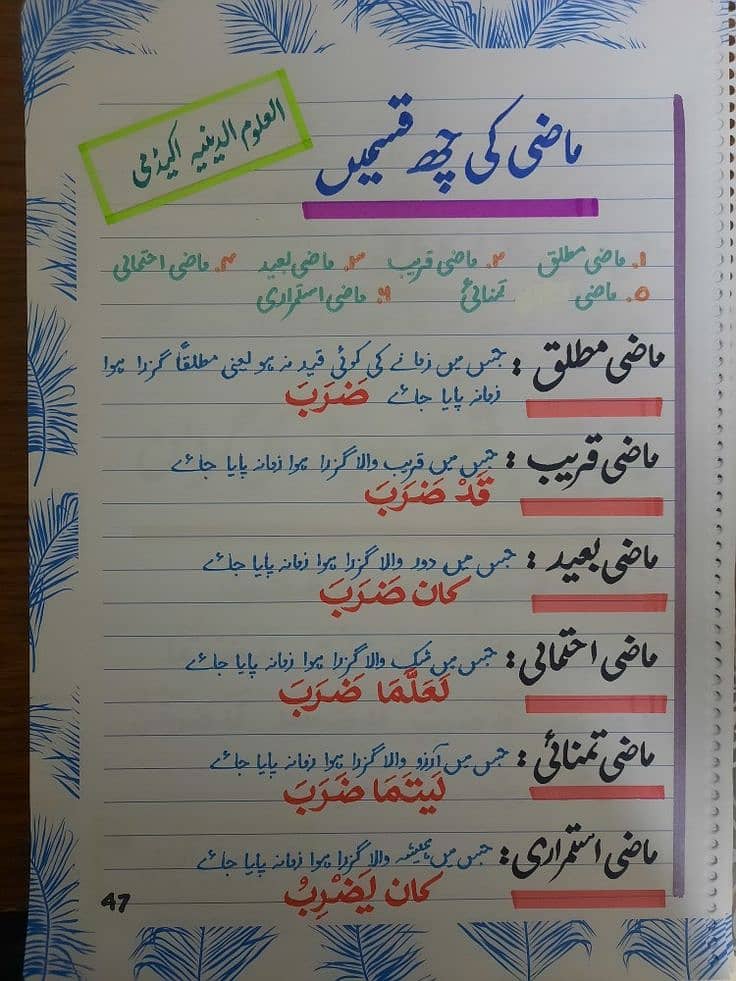 العلوم الدینیہ اکیڈمی
ماضی کی چھ قسمیں
۱. ماضی مطلق ۲. ماضی قریب ۳. ماضی بعید ۴. ماضی احتمالی
۵. ماضی تمنائی ۶. ماضی استمراری
ماضی مطلق : جس میں زمانے کی کوئی قید نہ ہو یعنی مطلقاً گزرا ہوا
زمانہ پایا جائے ضَرَبَ
ماضی قریب : جس میں قریب والا گزرا ہوا زمانہ پایا جائے
قَدْ ضَرَبَ
ماضی بعید : جس میں دور والا گزرا ہوا زمانہ پایا جائے
کان ضَرَبَ
ماضی احتمالی : جس میں شک والا گزرا ہوا زمانہ پایا جائے
لَعَلَّمَا ضَرَبَ
ماضی تمنائی : جس میں آرزو والا گزرا ہوا زمانہ پایا جائے
لَیتَمَا ضَرَبَ
ماضی استمراری : جس میں ہمیشہ والا گزرا ہوا زمانہ پایا جائے
کان یَضْرِبُ
47